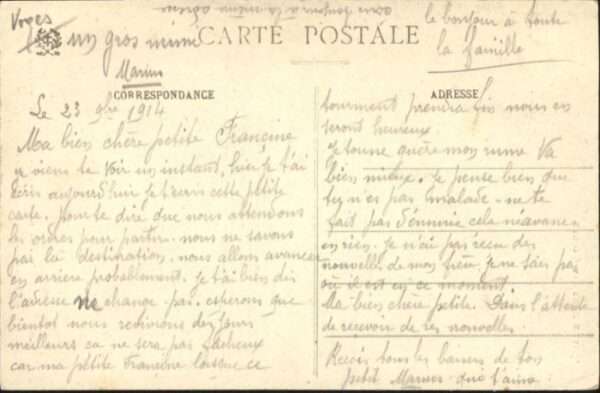 toujours à la même adresse
le bonjour à toute
la famille
un gros mimi
CARTE POSTALE
Marius
CORRESPONDANCE
ADRESSE
Le 23 9bre 1914
Ma bien chère petite Francine
je viens te voir un instant, hier je t'ai
écris aujourd'hui je t'ecris cette petite
carte. pour te dire que nous attendons
les ordres pour partir. nous ne savons
pas la destination. nous allons avancer
en arriere probablement. je t'ai bien dis
l'adresse ne change pas. esperons que
bientot nous revivions des jours
meilleurs ca ne sera pas facheux
car ma petite Francine lorsque ce
tourment prendra fin nous en
seront heureux
je tousse guère mon rume va
bien mieux. je pense bien que
tu n'es pas malade. ne te
fait pas d'ennuie cela n'avance
en rien. je n'ai pas recue des
nouvelles de mon frère, je ne sais pas
où il est en ce moment.
Ma bien chère petite. Dans l'attente
de recevoir de tes nouvelles.
Recois tous les baisers de ton
petit Marius qui t'aime.